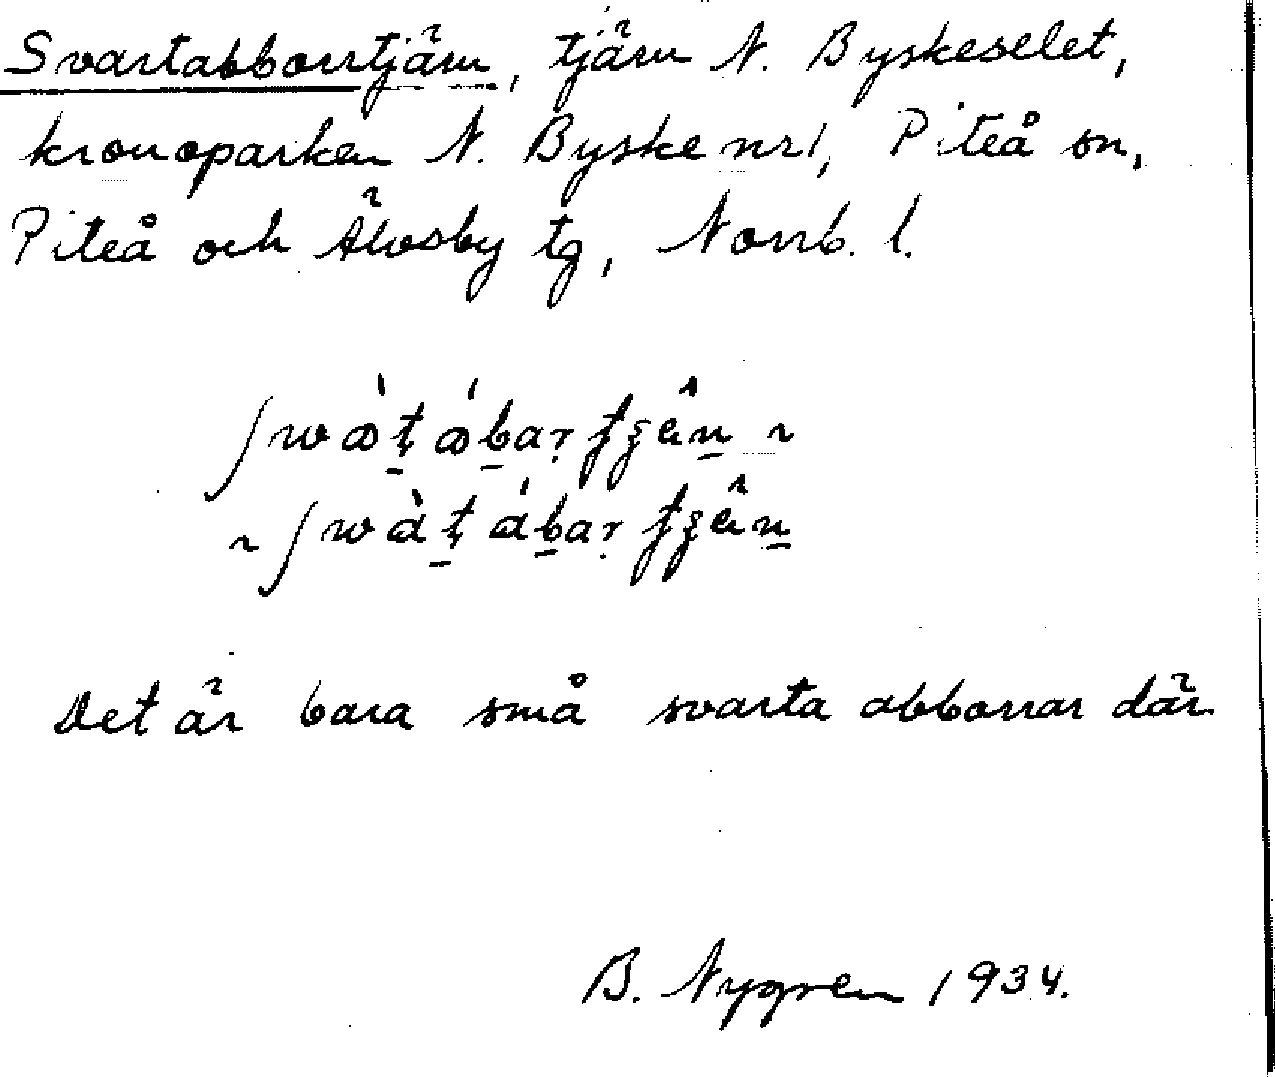 Svartabborrtjärn, tjärn N. Byskeselet,
kronoparken N. Byske nr 1, Piteå sn,
Piteå och Älvsby tg, Norrb. l.
Det är bara små svarta abborrar där
B. Nygren 1934.